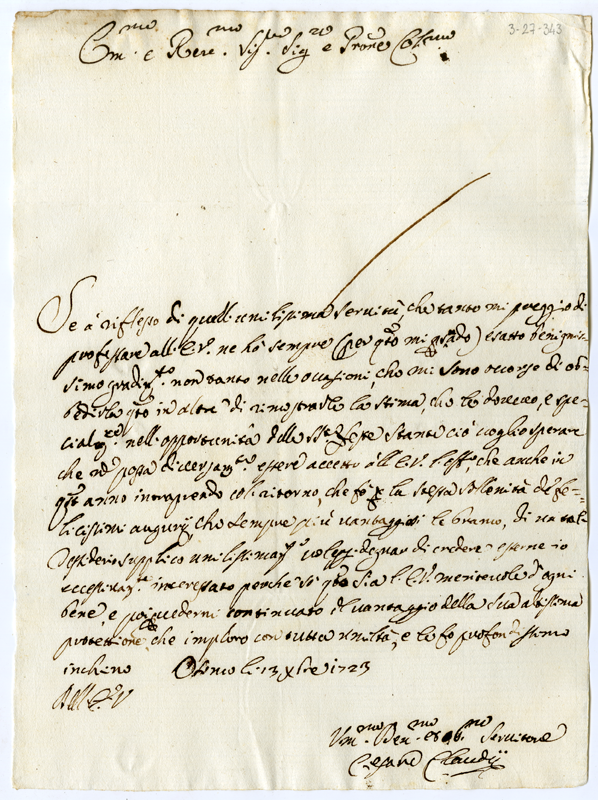 3-27-343
Em.mo e Rere.mo Sig.re Sig.re e Prone Col.mo
Se à riflesso di quell'umilissima servitù, che tanto mi preggio di
professare all'E.V. ne hò sempre (per q.to mi è grado) esatto benignis-
simo gradim.to non tanto nelle occasioni, che mi sono occorse di ob-
bedirla q.to in altre di rimostrarle la stima, che le devo, e spe-
cialm.te nell'opportunità delle S.te Feste stante ciò voglio sperare
che non possa diversam.te essere accetto all'E.V. l'off.o, che anche in
quest'anno intraprendo col ritorno, che fò per la stessa sollenità de fe-
licissimi augurij, che sempre più vantaggiosi le bramo, di un tal
desiderio supplico umilissimam.te volersi degnar di credere esserne io
eccessivam.te interessato perche sò q.to sia l'E.V. meritevole d'ogni
bene, e per vedermi continuato il vantaggio della sua altissima
protettione che imploro con tutta umiltà, e le fò profondissimo
inchino Osimo li 13 Xbre 1723
Dell'E.V.
Um.mo Dev.mo et Ob.mo Servitore
Cesare Claudij